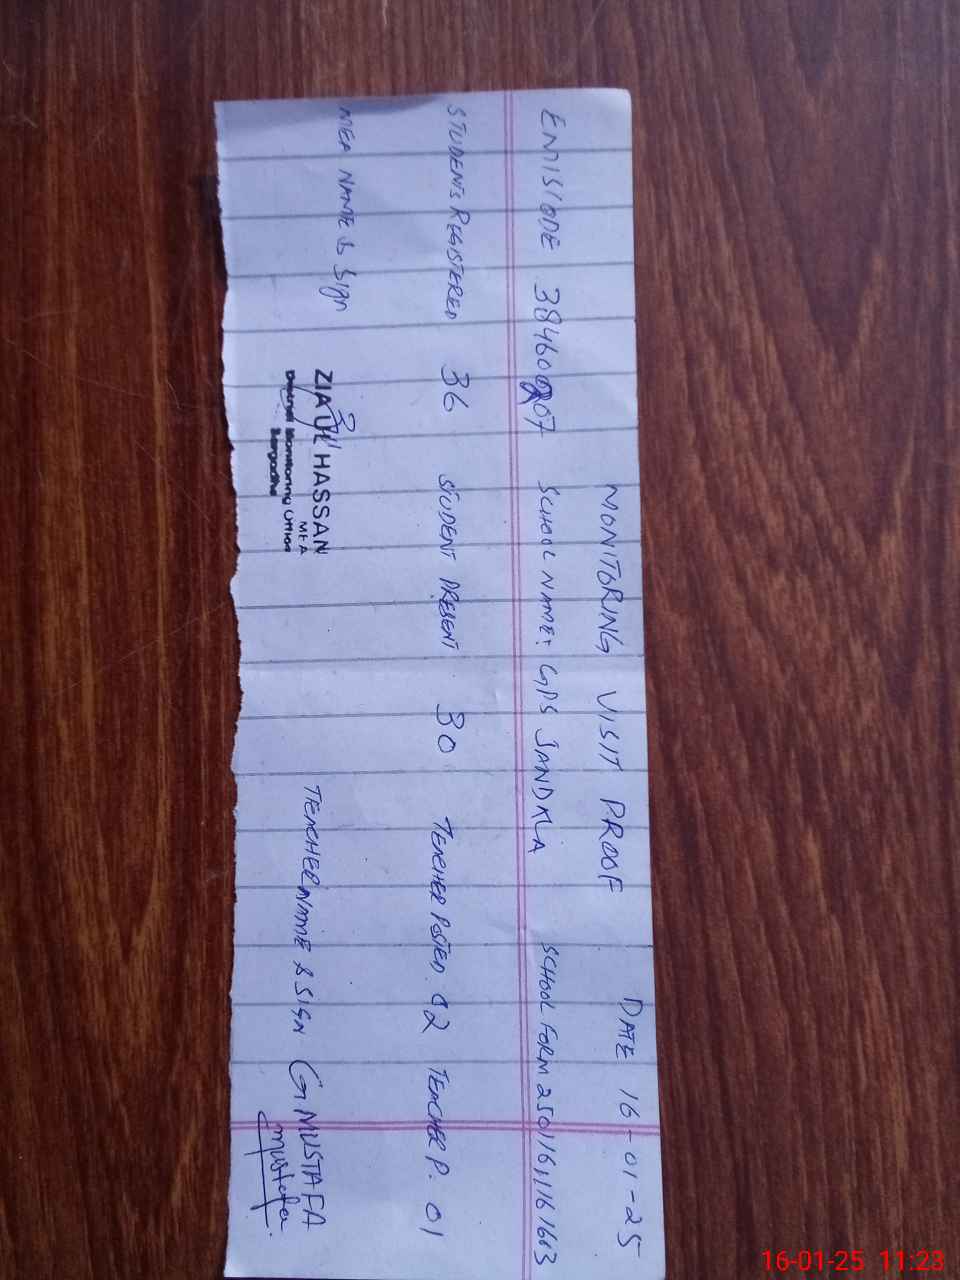 MONITORING VISIT PROOF DATE 16-01-25
EMISCODE 384600207 SCHOOL NAME: GPS JANDALA SCHOOL FORM
STUDENTS REGISTERED 36 STUDENT PRESENT 30 TEACHER POSTED. 02 TEACHER P. 01
MEA NAME & Sign TEACHER NAME & SIGN G MUSTAFA
Mustafa
ZIA UL HASSAN
MEA
District Monitoring Office
Sargodha
16-01-25 11:23